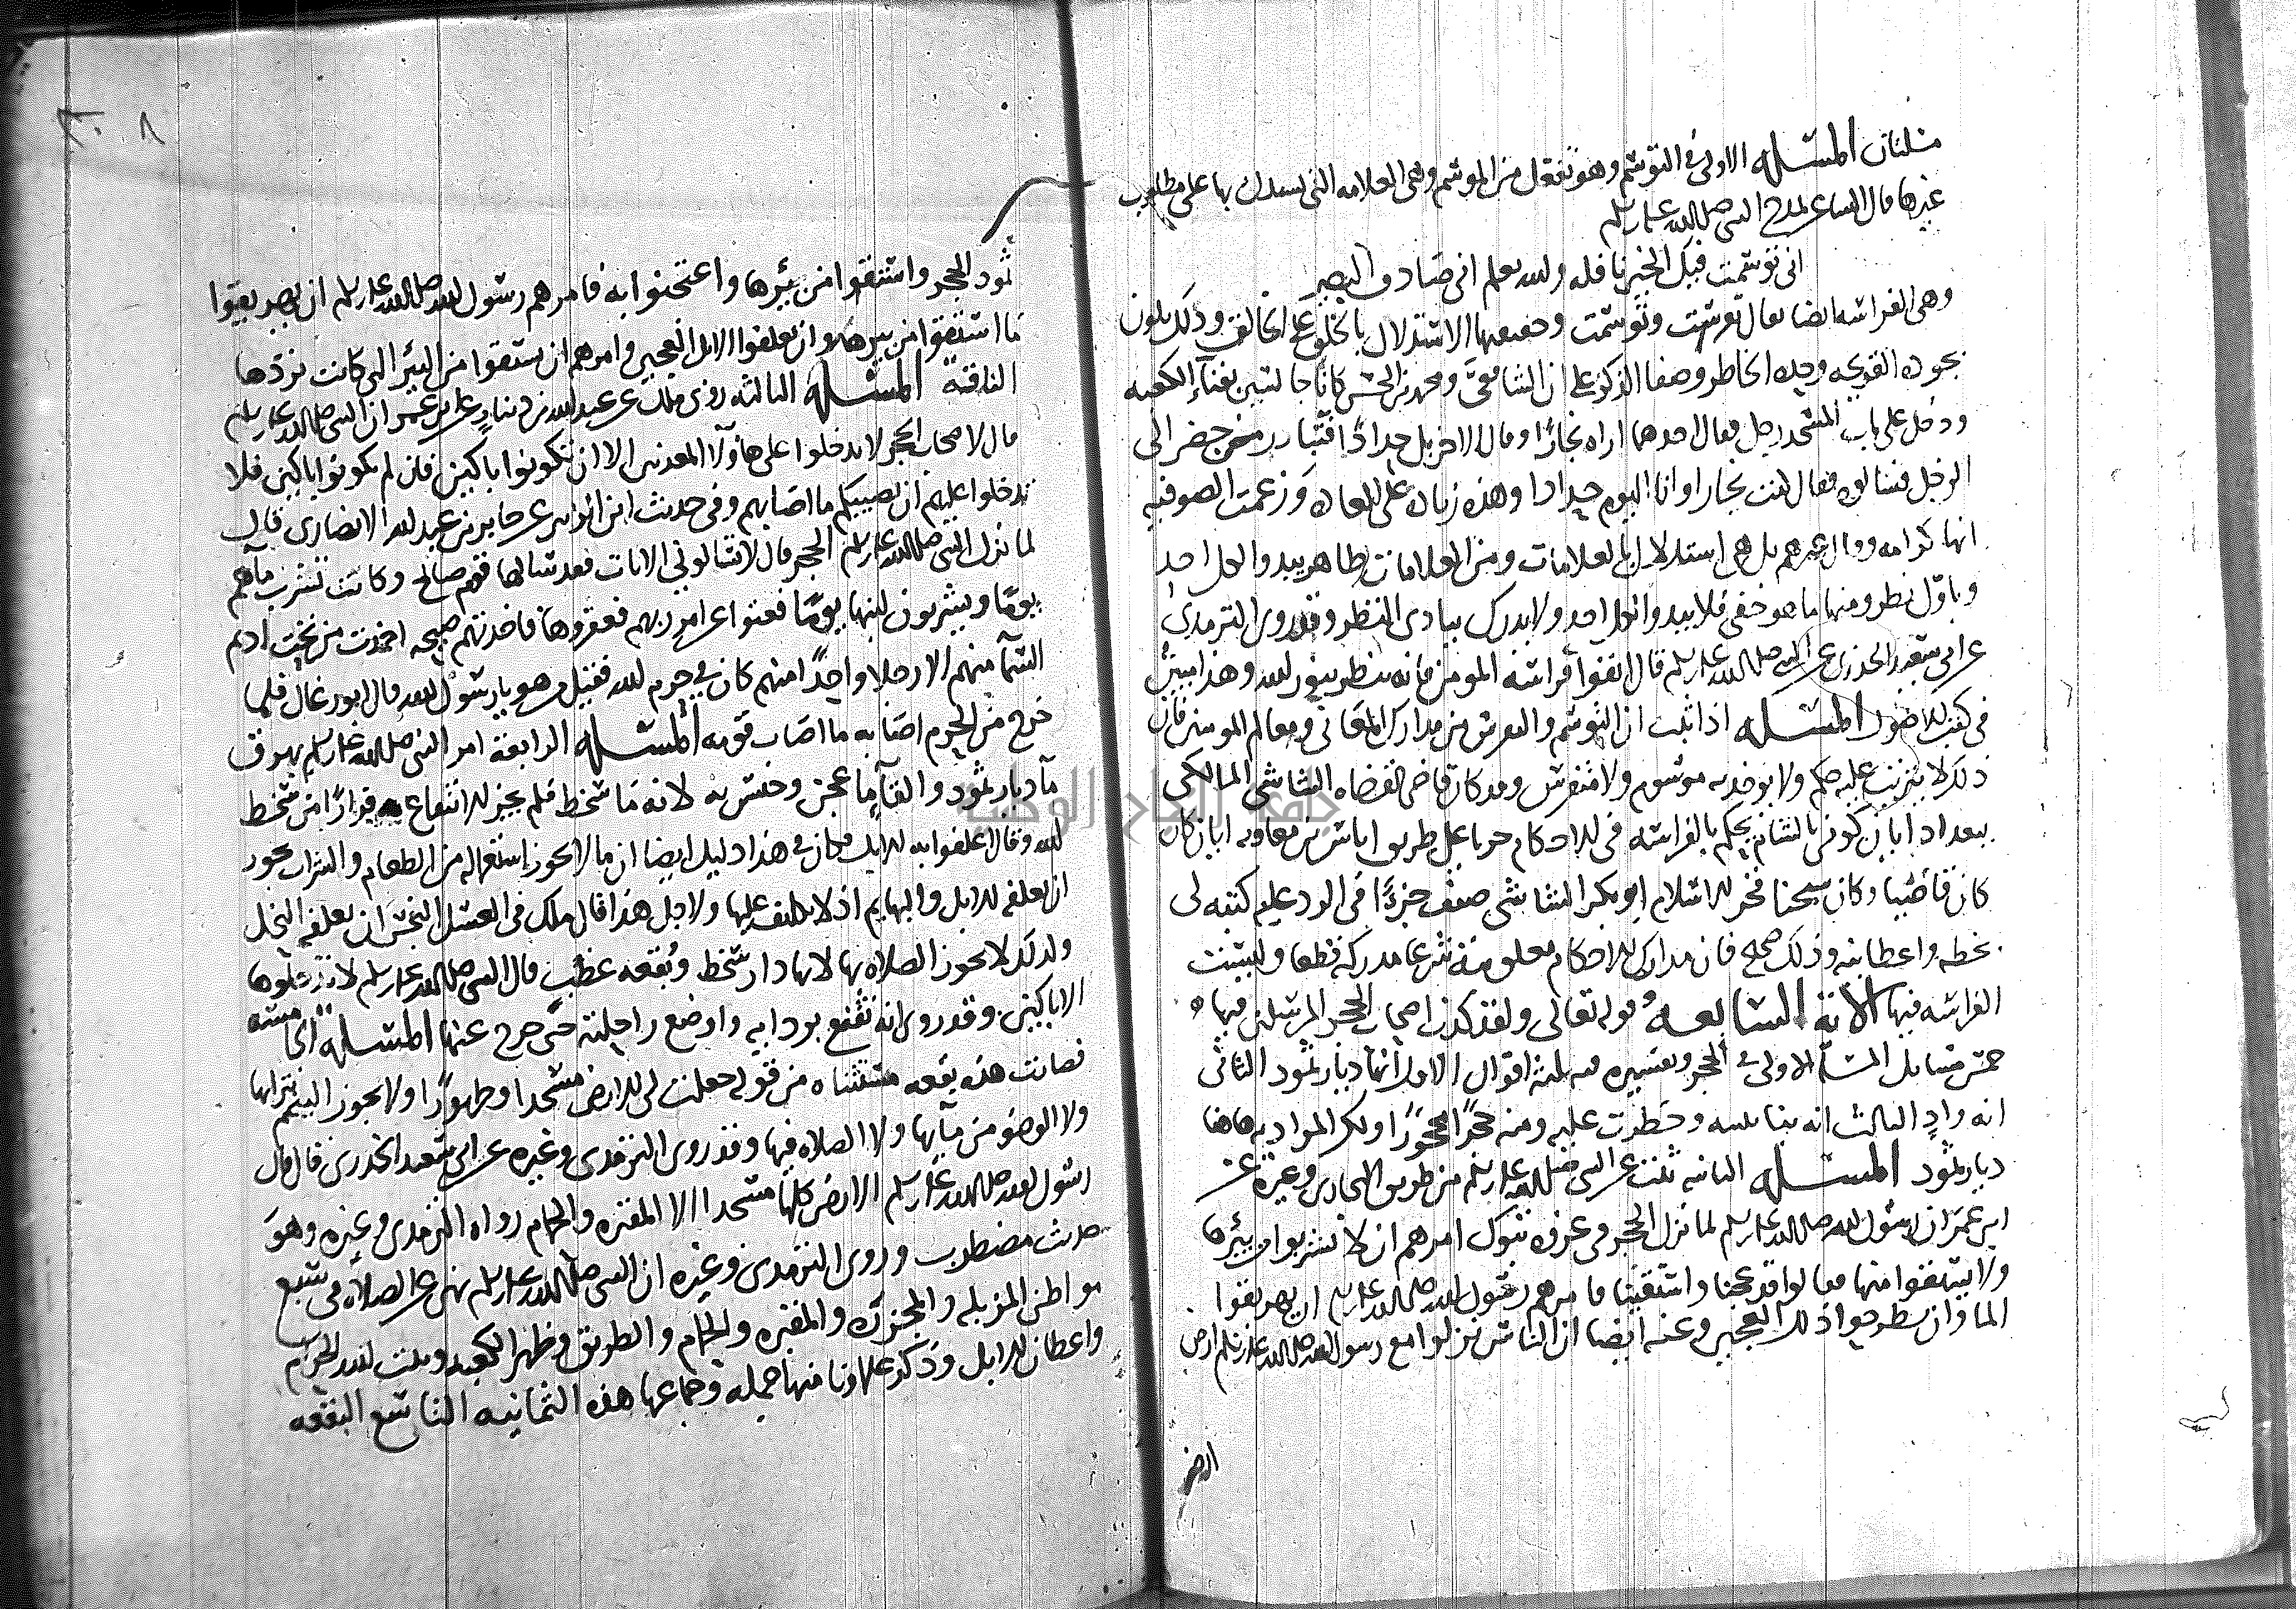 مسلتان المسله الاولى في التوسم وهو تفعل من الوسم وهى العلامه التى يستدل بها على مطلوب
غيرها قال الشاعر يمدح النبى صلى الله عليه وسلم
انى توسمت فيك الخير نافله والله يعلم انى صادق البصير
وهى الفراسه ايضا يقال تفرست وتوسمت وحقيقتها الاستدلال بالخلق على الخالق وذلك يكون
بجوده القريحه وحده الخاطر وصفا الفكر وعلى ان الشافعى ومحمد بن الحسن كانا جالسين بفناء الكعبه
ودخل على باب المسجد رجل فقال احدهما اراه نجارًا وقال الاخر بل حدادًا فتبادر من حضر الى
الرجل فسالوه فقال كنت نجارا وانا اليوم حدادا وهذه زياده على العاده وزعمت الصوفيه
انها كرامه وقال غيرهم بل هى استدلال بالعلامات ومن العلامات ظاهر يبدو لكل احد
وباول نظر ومنها ما هو خفى فلا يبدو لكل احد ولا يدرك ببادى النظر وقد روى الترمذى
عن ابى سعيد الخدرى عن النبى صلى الله عليه وسلم قال اتقوا فراسه المومن فانه ينظر بنور الله وهذا مبين
فى كتب الاصول المسله اذا ثبت ان التوسم والتفرس من مدارك المعانى ومعالم المومنين فان
ذلك لا يترتب عليه حكم ولا يوخذ به موسوم ولا متفرس وقد كان قاضى القضاه الشاشى المالكى
ببغداد ايام كونى بالشام يحكم بالفراسه فى الاحكام جريا على طريق اياس بن معاويه ايام كان
كان قاضيا وكان شيخنا فخر الاسلام ابو بكر الشاشى صنف جزءًا فى الرد عليه كتبه لى
بخطه واعطانيه وذلك صحيح فان مدارك الاحكام معلومه شرعا مدركه قطعا وليست
الفراسه فيها الايه السابعه قوله تعالى ولقد كذب اصحاب الحجر المرسلين فيها
خمس مسايل المسله الاولى فى الحجر وتفسيره فيه ثلثه اقوال الاول انها ديار ثمود الثانى
انه وادٍ الثالث انه بنا بنيته وحظرت عليه ومنه حجرًا محجورًا ولكن المراد به هاهنا
ديار ثمود المسله الثانيه ثبت عن النبى صلى الله عليه وسلم من طريق البخارى وغيره عن
ابن عمر ان رسول الله صلى الله عليه وسلم لما نزل الحجر فى غزوه تبوك امرهم ان لا يشربوا من بئرها
ولا يستقوا منها فقالوا قد عجنا واستقينا فامرهم رسول الله صلى الله عليه وسلم ان يهريقوا
الما وان يطرحوا ذلك العجين وعنه ايضا ان الناس نزلوا مع رسول الله صلى الله عليه وسلم ارض
ارض
ثمود الحجر واستقوا من بئرها واعتجنوا به فامرهم رسول الله صلى الله عليه وسلم ان يهريقوا
ما استقوا من بيرها وان يعلفوا الابل العجين وامرهم ان يستقوا من البئر التى كانت تردها
الناقه المسله الثالثه روى ملك عن عبد الله بن دينار عن ابن عمر ان النبى صلى الله عليه وسلم
قال لاصحاب الحجر لا تدخلوا على هاولا المعذبين الا ان تكونوا باكين فان لم تكونوا باكين فلا
تدخلوا عليهم ان يصيبكم ما اصابهم وفى حديث ابن الزبير عن جابر بن عبد الله الانصارى قال
لما نزل النبى صلى الله عليه وسلم الحجر قال لا تسالونى الايات فقد سالها قوم صالح وكانت تشرب ماهم
يومًا ويشربون لبنها يومًا فعتوا عن امر ربهم فعقروها فاخذتهم صيحه اخمدت من تحت اديم
السما منهم الا رجلا واحدًا منهم كان فى حرم الله فقيل من هو يا رسول الله قال ابو رغال فلما
خرج من الحرم اصابه ما اصاب قومه المسله الرابعه امر النبى صلى الله عليه وسلم بهرق
ما ديار ثمود والقا ما عجن وحيس به لانه ما سخط فلم يجز الانتفاع به فرارًا من سخط
الله وقال اعلفوا به الابل فكان فى هذا دليل ايضا ان ما لا يجوز استعماله من الطعام والشراب يجوز
ان يعلفه الابل والبهايم اذ لا تكليف عليها ولاجل هذا قال ملك فى العسل النجس ان يعلفه النحل
ولذلك لا يجوز الصلاه بها لانها دار سخط وبقعه غضب قال النبى صلى الله عليه وسلم لا تدخلوها
الا باكين وقد روى انه تقنع بردايه واوضع راحلته حتى خرج عنها المسله الخامسه
فصارت هذه بقعه مستثناه من قوله جعلت لى الارض مسجدا وطهورًا ولا يجوز التيمم بترابها
ولا الوضو من مايها ولا الصلاه فيها وقد روى الترمذى وغيره عن ابى سعيد الخدرى قال قال
رسول الله صلى الله عليه وسلم الارض كلها مسجدا الا المقبره والحمام رواه الترمذى وغيره وهو
حديث مضطرب وروى الترمذى وغيره ان النبى صلى الله عليه وسلم نهى عن الصلاه فى سبع
مواطن المزبله والمجزره والمقبره والحمام والطريق وظهر الكعبه وبيت الله الحرام
واعطان الابل وذكر علماونا منها جمله وجماعها هذه الثمانيه التاسع البقعه